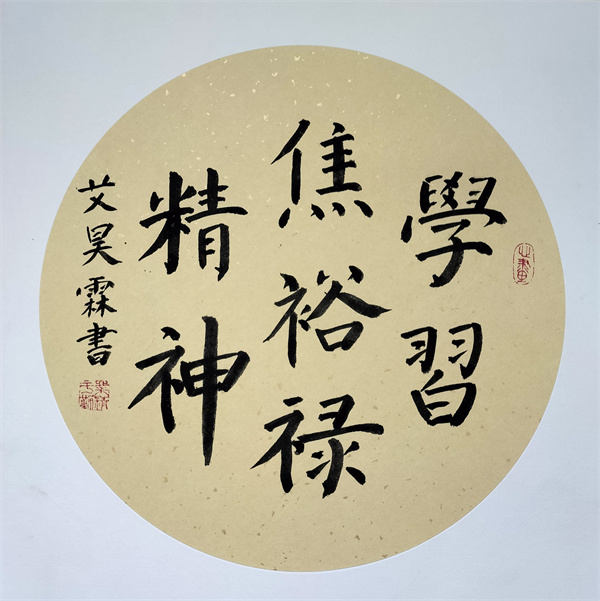 學習
焦裕禄
精神
艾昊霖書